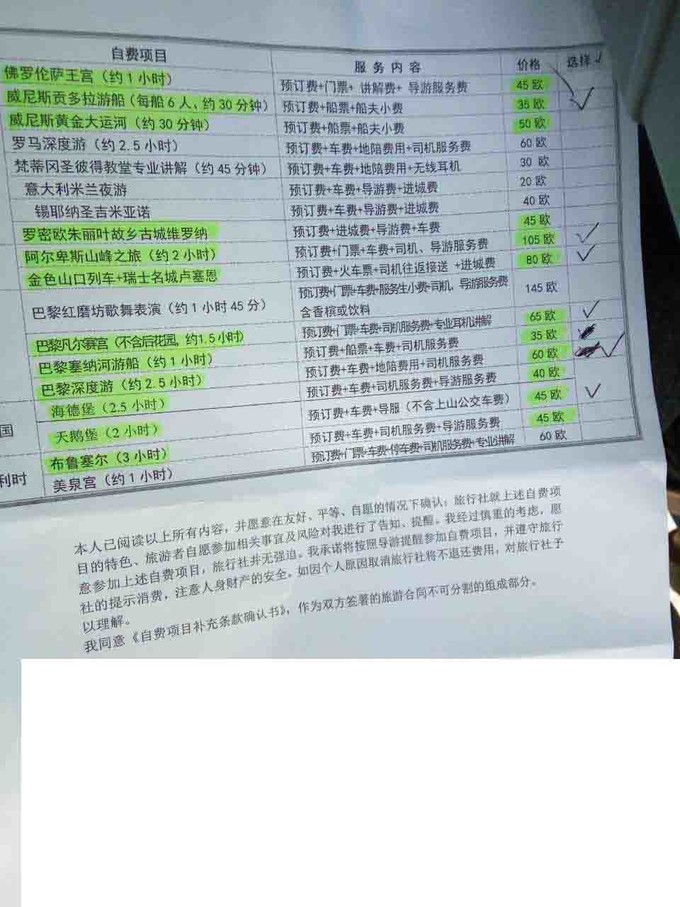 自费项目 服务内容 价格 选择√
佛罗伦萨王宫（约1小时） 预订费+门票+ 讲解费+ 导游服务费 45 欧
威尼斯贡多拉游船（每船6人，约30分钟） 预订费+船票+船夫小费 35 欧 √
威尼斯黄金大运河（约30分钟） 预订费+船票+船夫小费 50 欧
罗马深度游（约2.5小时） 预订费+车费+地陪费用+司机服务费 60 欧
梵蒂冈圣彼得教堂专业讲解（约45分钟） 预订费+车费+地陪费用+无线耳机 30 欧
意大利米兰夜游 预订费+车费+导游费+进城费 20 欧
锡耶纳圣吉米亚诺 预订费+车费+导游费+进城费 40 欧
罗密欧朱丽叶故乡古城维罗纳 预订费+进城费+导游费+车费 45 欧
阿尔卑斯山峰之旅（约2小时） 预订费+门票+车费+司机、导游服务费 105 欧 √
金色山口列车+瑞士名城卢塞恩 预订费+火车票+司机往返接送 +进城费 80 欧 √
巴黎红磨坊歌舞表演（约1小时45分） 预订费+门票+车费+服务生小费+司机、导游服务费 145 欧
含香槟或饮料
巴黎凡尔赛宫（不含后花园，约1.5小时） 预订费+门票+车费+司机服务费+专业耳机讲解 65 欧 √
巴黎塞纳河游船（约1小时） 预订费+船票+车费+司机服务费 35 欧
巴黎深度游（约2.5小时） 预订费+车费+地陪费用+司机服务费 60 欧 √
海德堡（2.5小时） 预订费+车费+司机服务费+导游服务费 40 欧
国 天鹅堡（2小时） 预订费+车费+导服（不含上山公交车费） 45 欧 √
布鲁塞尔（3小时） 预订费+车费+司机服务费+导游服务费 45 欧
利时 美泉宫（约1小时） 预订费+门票+车费+停车费+司机服务费+专业讲解 60 欧
本人已阅读以上所有内容，并愿意在友好、平等、自愿的情况下确认：旅行社就上述自费项
目的特色、旅游者自愿参加相关事宜及风险对我进行了告知、提醒。我经过慎重的考虑，愿
意参加上述自费项目，旅行社并无强迫。我承诺将按照导游提醒参加自费项目，并遵守旅行
社的提示消费，注意人身财产的安全。如因个人原因取消旅行社将不退还费用，对旅行社予
以理解。
我同意《自费项目补充条款确认书》，作为双方签署的旅游合同不可分割的组成部分。